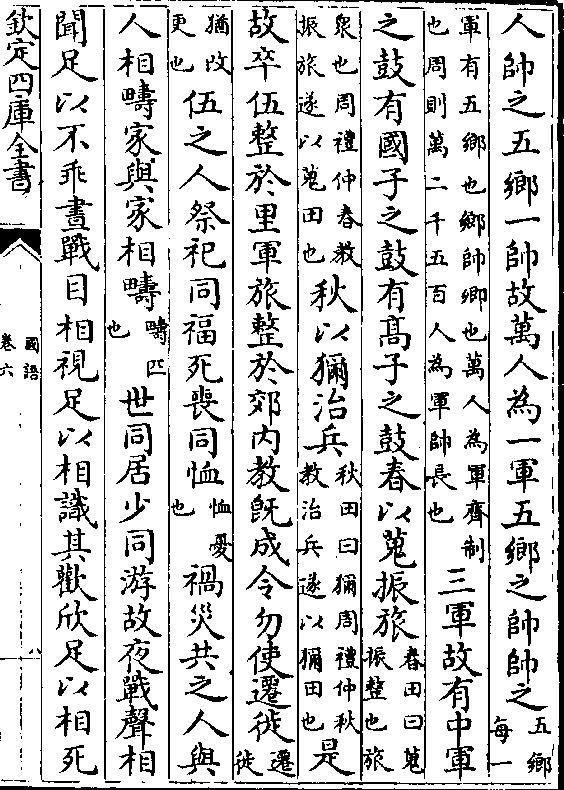 人帥之五鄉一帥故萬人為一軍五鄉之帥帥之五鄉每一
軍有五鄉也鄉帥卿也萬人為軍齊制也周則萬二千五百人為軍帥長也三軍故有中軍
之鼓有國子之鼓有髙子之鼓春以蒐振旅春田曰蒐振整也旅
衆也周禮仲春教振旅遂以蒐田也秋以獮治兵秋田曰獮周禮仲秋教治兵遂以獮田也是
故卒伍整於里軍旅整於郊内教既成令勿使遷徙遷徙
猶改更也伍之人祭祀同福死喪同恤恤憂也禍災共之人與
人相疇家與家相疇疇匹也世同居少同游故夜戰聲相
聞足以不乖晝戰目相視足以相識其歡欣足以相死
欽定四庫全書
國語
卷六
八